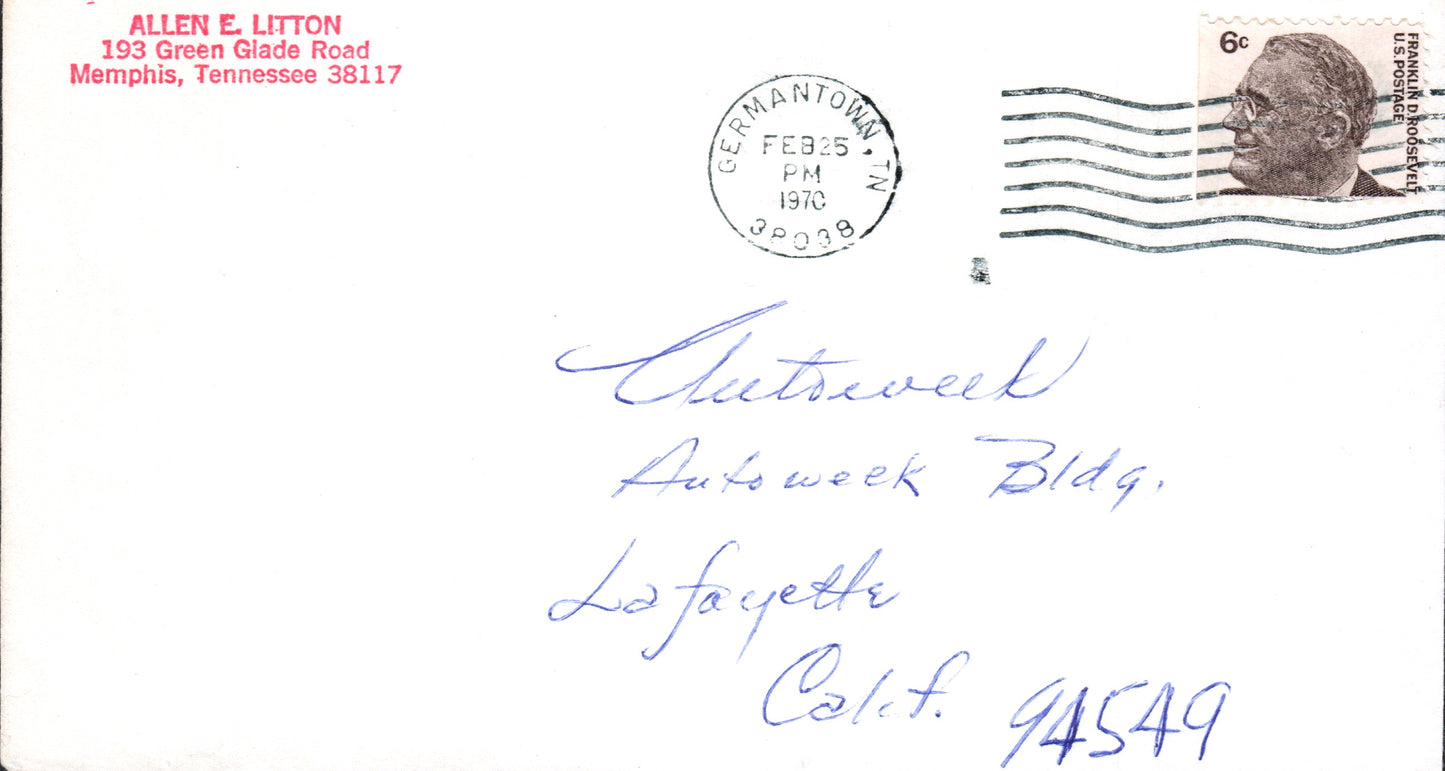 ALLEN E. LITTON
193 Green Glade Road
Memphis, Tennessee 38117
GERMANTOWN, TN
FEB 25
PM
1970
38038
6c
FRANKLIN D. ROOSEVELT
U.S. POSTAGE
Autoweek
Autoweek Bldg.
Lafayette
Calif. 94549